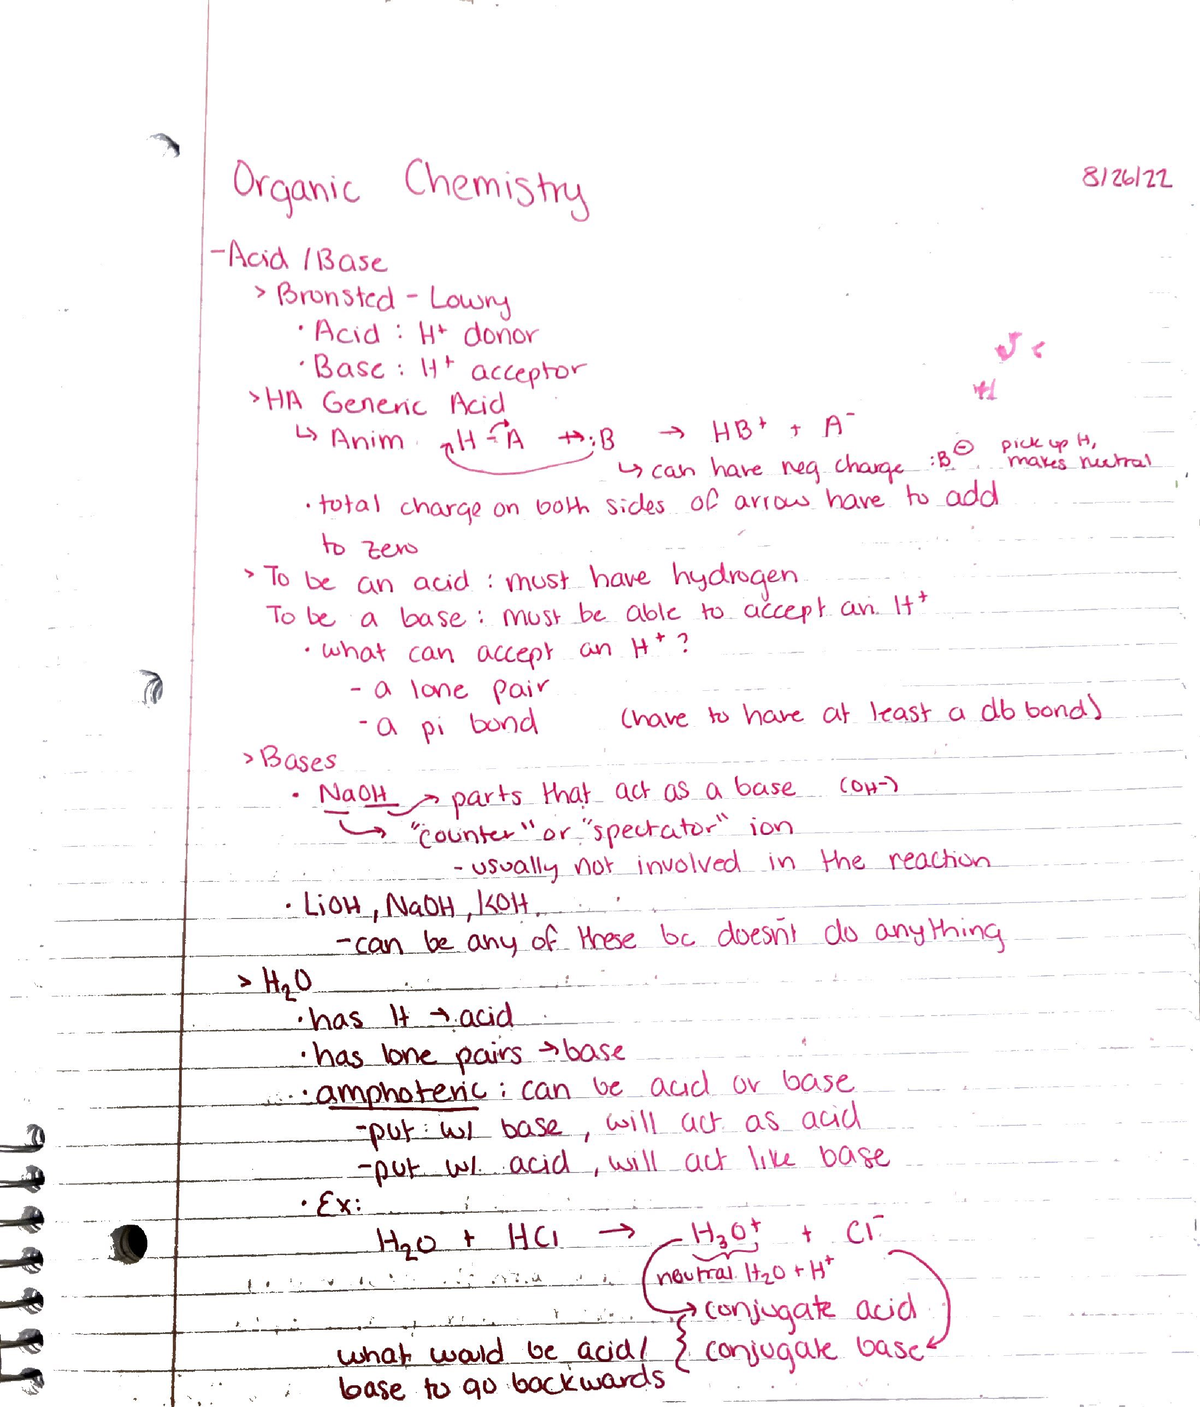 Organic Chemistry
8/26/22
-Acid /Base
> Bronsted - Lowry
• Acid : H+ donor
• Base : H+ acceptor
>HA Generic Acid
↳ Anim H-A :B → HB+ + A-
↳ can have neg charge :B⊖ pick up H, makes neutral
+1
• total charge on both sides of arrow have to add
to zero
> To be an acid : must have hydrogen
To be a base : must be able to accept an H+
• what can accept an H+ ?
- a lone pair
- a pi bond (have to have at least a db bond)
> Bases
• NaOH → parts that act as a base (OH-)
↳ "counter" or "spectator" ion
- usually not involved in the reaction
• LiOH, NaOH, KOH
-can be any of these bc doesn't do anything
> H2O
• has H → acid
• has lone pairs → base
• amphoteric : can be acid or base
-put w/ base, will act as acid
-put w/ acid, will act like base
• Ex:
H2O + HCl → H3O+ + Cl-
neutral H2O + H+
→ conjugate acid
what would be acid/ } conjugate base
base to go backwards